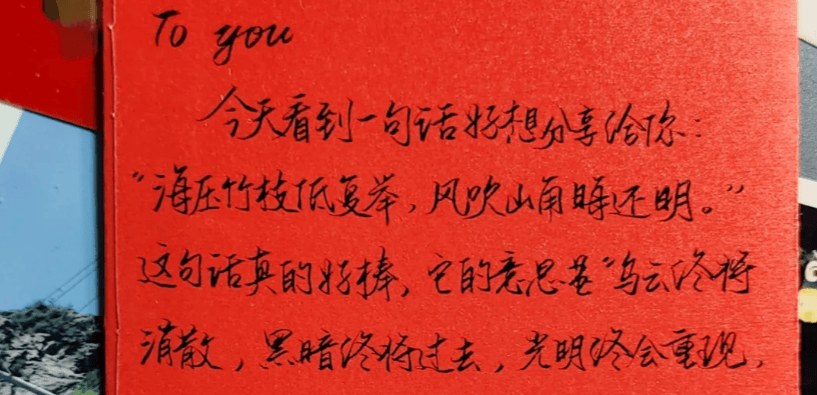 To you
今天看到一句话好想分享给你：
“海压竹枝低复举，风吹山角晦还明。”
这句话真的好棒，它的意思是“乌云终将
消散，黑暗终将过去，光明终会重现，